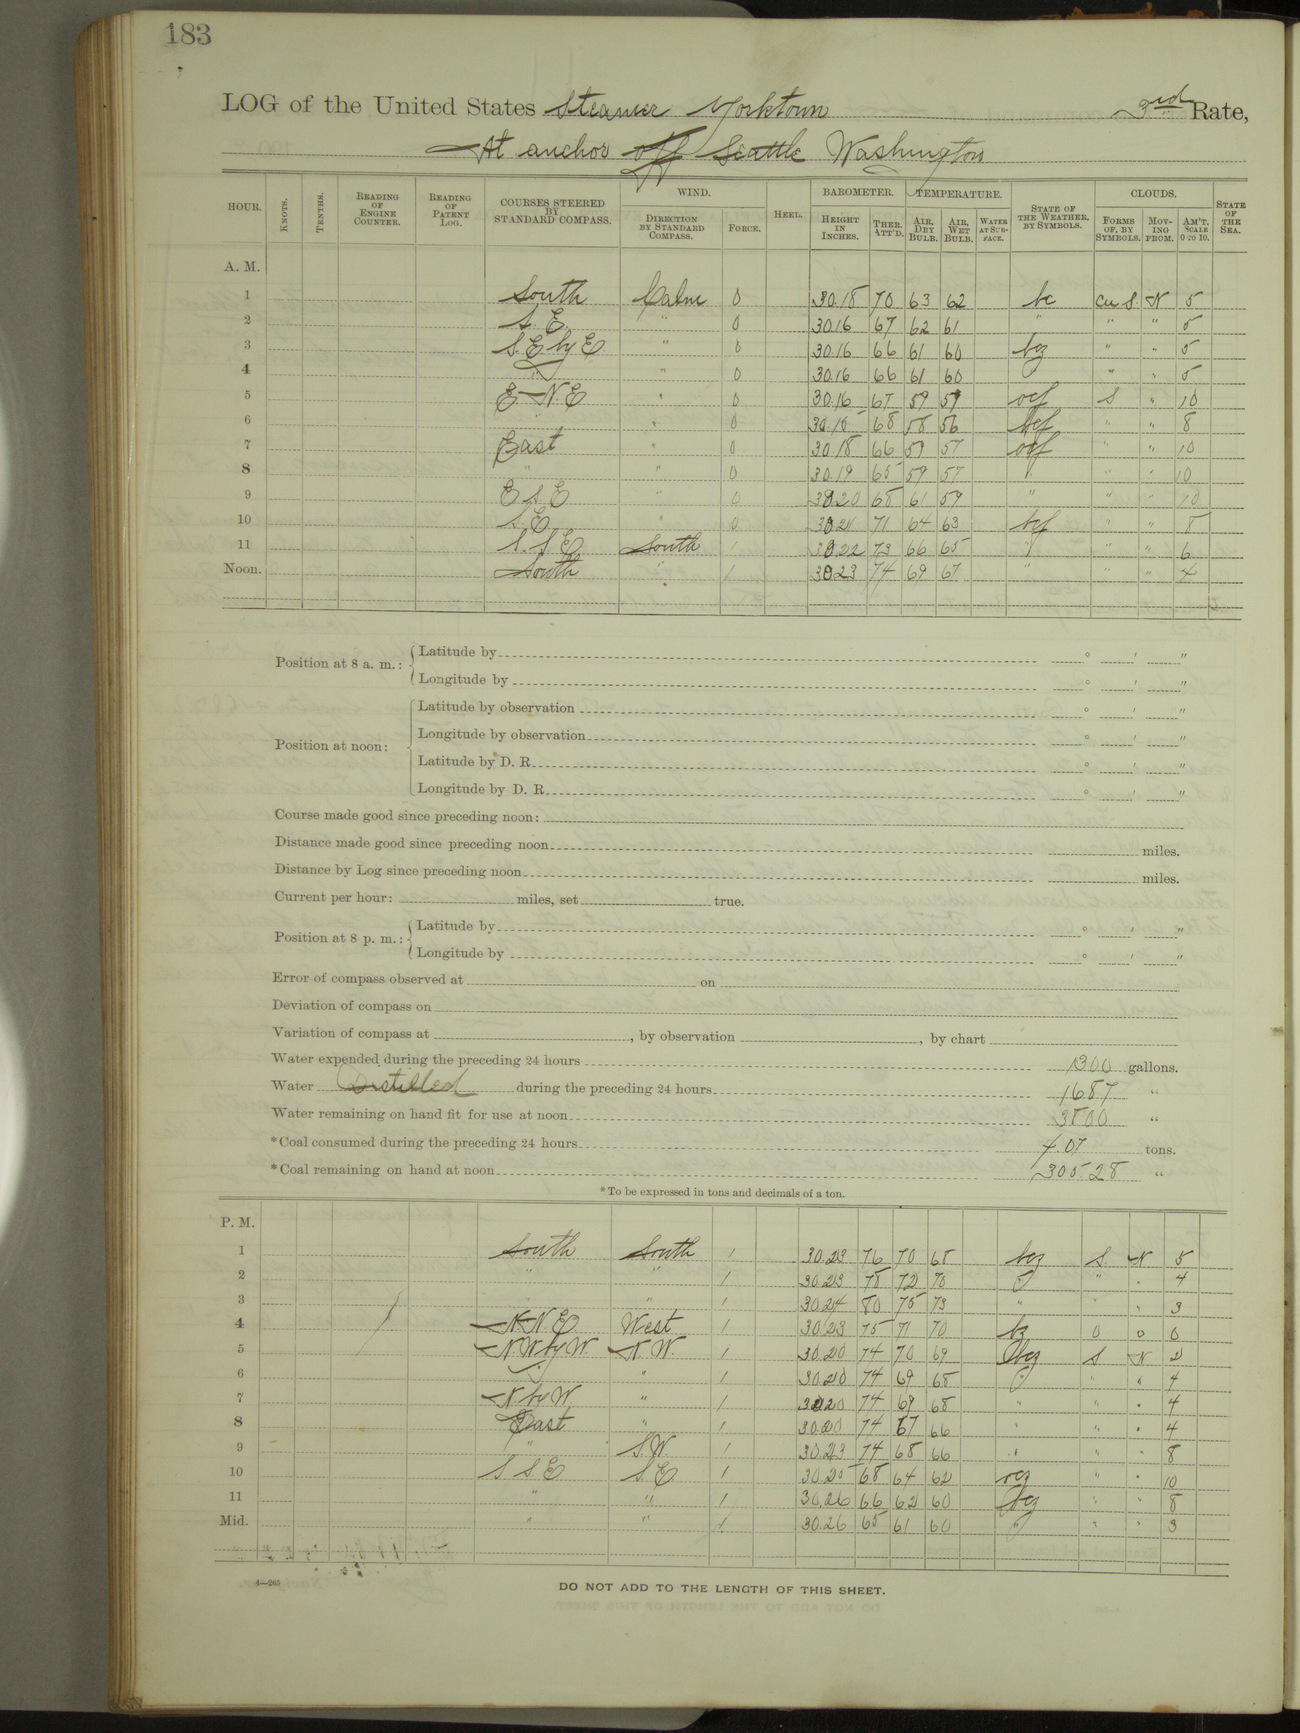 183
LOG of the United States Steamer Yorktown 3rd Rate,
At anchor off Seattle Washington
HOUR. KNOTS. TENTHS. READING OF ENGINE COUNTER. READING OF PATENT LOG. COURSES STEERED BY STANDARD COMPASS. WIND. DIRECTION BY STANDARD COMPASS. FORCE. HEEL. BAROMETER. HEIGHT IN INCHES. THER. ATT'D. TEMPERATURE. AIR, DRY BULB. AIR, WET BULB. WATER AT SUR-FACE. STATE OF THE WEATHER, BY SYMBOLS. CLOUDS. FORMS OF, BY SYMBOLS. MOV-ING FROM. AM'T. SCALE 0 TO 10. STATE OF THE SEA.
A. M.
1 South Calm 0 30.18 70 63 62 bc Cu S. N 5
2 S. E. " 0 30.16 67 62 61 " " " 5
3 S.E. by E. " 0 30.16 66 61 60 bcz " " 5
4 " " 0 30.16 66 61 60 " " 5
5 E-N.E " 0 30.16 67 59 57 ocf S " 10
6 " " 0 30.18 68 58 56 bcf " " 8
7 East " 0 30.18 66 59 57 ocf " " 10
8 " " 0 30.19 65 59 57 " " " 10
9 E S. E " 0 30.20 68 61 59 " " " 10
10 S.E. " 0 30.21 71 64 63 bcf " " 8
11 S. S. E South 1 30.22 73 66 65 " " " 6
Noon. South " 1 30.23 74 69 67 " " " 4
Position at 8 a. m.: Latitude by ° ' "
Longitude by ° ' "
Position at noon: Latitude by observation ° ' "
Longitude by observation ° ' "
Latitude by D. R. ° ' "
Longitude by D. R. ° ' "
Course made good since preceding noon:
Distance made good since preceding noon miles.
Distance by Log since preceding noon miles.
Current per hour: miles, set true.
Position at 8 p. m.: Latitude by ° ' "
Longitude by ° ' "
Error of compass observed at on
Deviation of compass on
Variation of compass at , by observation , by chart
Water expended during the preceding 24 hours 1300 gallons.
Water Distilled during the preceding 24 hours 1687 "
Water remaining on hand fit for use at noon 3800 "
*Coal consumed during the preceding 24 hours 4.07 tons.
*Coal remaining on hand at noon 305.28 "
*To be expressed in tons and decimals of a ton.
P. M.
1 South South 1 30.23 76 70 68 bcz S. N 5
2 " " 1 30.23 78 72 70 " " 4
3 " " 1 30.24 80 75 73 " " " 3
4 N-N E West 1 30.23 75 71 70 bz 0 0 0
5 N W by W N W. 1 30.20 74 70 69 bcz S N 2
6 " " 1 30.20 74 69 68 " " " 4
7 N by W " 1 30.20 74 69 68 " " " 4
8 East " 1 30.20 74 67 66 " " " 4
9 " S.W. 1 30.23 74 68 66 " " " 8
10 S S E S. E 1 30.25 68 64 62 " " 10
11 " " 1 30.26 66 62 60 bcz " " 8
Mid. " " 1 30.26 65 61 60 " " " 3
4—265
DO NOT ADD TO THE LENGTH OF THIS SHEET.